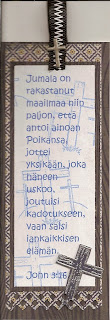 Jumala on
rakastanut
maailmaa niin
paljon, että
antoi ainoan
Poikansa,
jottei
yksikään, joka
häneen
uskoo,
joutuisi
kadotukseen,
vaan saisi
iankaikkisen
elämän.
John 3:16